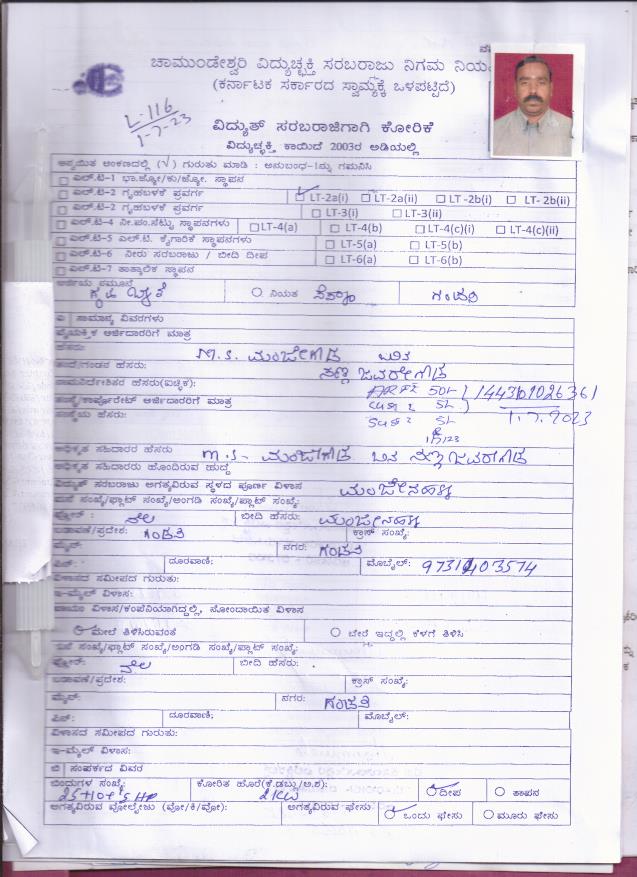 ಚಾಮುಂಡೇಶ್ವರಿ ವಿದ್ಯುಚ್ಛಕ್ತಿ ಸರಬರಾಜು ನಿಗಮ ನಿಯ
(ಕರ್ನಾಟಕ ಸರ್ಕಾರದ ಸ್ವಾಮ್ಯಕ್ಕೆ ಒಳಪಟ್ಟಿದೆ)
L-116
1-7-23
ವಿದ್ಯುತ್ ಸರಬರಾಜಿಗಾಗಿ ಕೋರಿಕೆ
ವಿದ್ಯುಚ್ಛಕ್ತಿ ಕಾಯಿದೆ 2003ರ ಅಡಿಯಲ್ಲಿ
ಅನ್ವಯಿತ ಅಂಕಣದಲ್ಲಿ (√) ಗುರುತು ಮಾಡಿ : ಅನುಬಂಧ-1ನ್ನು ಗಮನಿಸಿ
ಎಲ್.ಟಿ-1 ಭಾ.ಜ್ಯೋ/ಕು/ಜ್ಯೋ. ಸ್ಥಾಪನ
ಎಲ್.ಟಿ-2 ಗೃಹಬಳಕೆ ಪ್ರವರ್ಗ LT-2a(i) LT-2a(ii) LT -2b(i) LT- 2b(ii)
ಎಲ್.ಟಿ-2 ಗೃಹಬಳಕೆ ಪ್ರವರ್ಗ LT-3(i) LT-3(ii)
ಎಲ್.ಟಿ-4 ನೀ.ಪಂ.ಸೆಟ್ಟು ಸ್ಥಾಪನಗಳು LT-4(a) LT-4(b) LT-4(c)(i) LT-4(c)(ii)
ಎಲ್.ಟಿ-5 ಎಲ್.ಟಿ. ಕೈಗಾರಿಕೆ ಸ್ಥಾಪನಗಳು LT-5(a) LT-5(b)
ಎಲ್.ಟಿ-6 ನೀರು ಸರಬರಾಜು / ಬೀದಿ ದೀಪ LT-6(a) LT-6(b)
ಎಲ್.ಟಿ-7 ತಾತ್ಕಾಲಿಕ ಸ್ಥಾಪನ
ಅರ್ಜಿಯ ನಮೂನೆ ನಿಯತ
ಎ | ಸಾಮಾನ್ಯ ವಿವರಗಳು
ವೈಯಕ್ತಿಕ ಅರ್ಜಿದಾರರಿಗೆ ಮಾತ್ರ
ಹೆಸರು: M.S. ಮಂಜೇಗೌಡ ಬಿನ್
ತಂದೆ/ಗಂಡನ ಹೆಸರು: ಸಣ್ಣಜವರೇಗೌಡ
ನಾಮನಿರ್ದೇಶಿತರ ಹೆಸರು(ಐಚ್ಛಿಕ):
ಸಂಸ್ಥೆ/ಕಾರ್ಪೊರೇಟ್ ಅರ್ಜಿದಾರರಿಗೆ ಮಾತ್ರ
ಸಂಸ್ಥೆಯ ಹೆಸರು: 1.7.2023
1/7/23
ಅಧಿಕೃತ ಸಹಿದಾರರ ಹೆಸರು M.S- ಮಂಜೇಗೌಡ ಬಿನ್ ಸಣ್ಣಜವರೇಗೌಡ
ಅಧಿಕೃತ ಸಹಿದಾರರು ಹೊಂದಿರುವ ಹುದ್ದೆ
ವಿದ್ಯುತ್ ಸರಬರಾಜು ಅಗತ್ಯವಿರುವ ಸ್ಥಳದ ಪೂರ್ಣ ವಿಳಾಸ
ಮನೆ ಸಂಖ್ಯೆ/ಫ್ಲಾಟ್ ಸಂಖ್ಯೆ/ಅಂಗಡಿ ಸಂಖ್ಯೆ/ಪ್ಲಾಟ್ ಸಂಖ್ಯೆ: ಮಂಜೇನಹಳ್ಳಿ
ಫ್ಲೋರ್ : ನೆಲ ಬೀದಿ ಹೆಸರು: ಮಂಜೇನಹಳ್ಳಿ
ಬಡಾವಣೆ/ಪ್ರದೇಶ: ಗಂಡಸಿ ಕ್ರಾಸ್ ಸಂಖ್ಯೆ:
ಮೈನ್: ನಗರ: ಗಂಡಸಿ
ಪಿನ್: ದೂರವಾಣಿ: ಮೊಬೈಲ್:
ವಿಳಾಸದ ಸಮೀಪದ ಗುರುತು:
ಇ-ಮೈಲ್ ವಿಳಾಸ:
ಖಾಯಂ ವಿಳಾಸ/ಕಂಪೆನಿಯಾಗಿದ್ದಲ್ಲಿ, ನೋಂದಾಯಿತ ವಿಳಾಸ
ಮೇಲೆ ತಿಳಿಸಿರುವಂತೆ ಬೇರೆ ಇದ್ದಲ್ಲಿ ಕೆಳಗೆ ತಿಳಿಸಿ
ಮನೆ ಸಂಖ್ಯೆ/ಫ್ಲಾಟ್ ಸಂಖ್ಯೆ/ಅಂಗಡಿ ಸಂಖ್ಯೆ/ಪ್ಲಾಟ್ ಸಂಖ್ಯೆ:
ಫ್ಲೋರ್: ನೆಲ ಬೀದಿ ಹೆಸರು:
ಬಡಾವಣೆ/ಪ್ರದೇಶ: ಕ್ರಾಸ್ ಸಂಖ್ಯೆ:
ಮೈನ್: ನಗರ: ಗಂಡಸಿ
ಪಿನ್: ದೂರವಾಣಿ: ಮೊಬೈಲ್:
ವಿಳಾಸದ ಸಮೀಪದ ಗುರುತು:
ಇ-ಮೈಲ್ ವಿಳಾಸ:
ಬಿ | ಸಂಪರ್ಕದ ವಿವರ
ಬಿಂದುಗಳ ಸಂಖ್ಯೆ: ಕೋರಿತ ಹೊರೆ(ಕೆ.ಡಬ್ಲು/ಅ.ಶ): 2KW ದೀಪ ತಾಪನ
ಅಗತ್ಯವಿರುವ ವೋಲ್ಟೇಜು (ವೋ/ಕಿ/ವೋ): ಅಗತ್ಯವಿರುವ ಫೇಸು ಒಂದು ಫೇಸು ಮೂರು ಫೇಸು